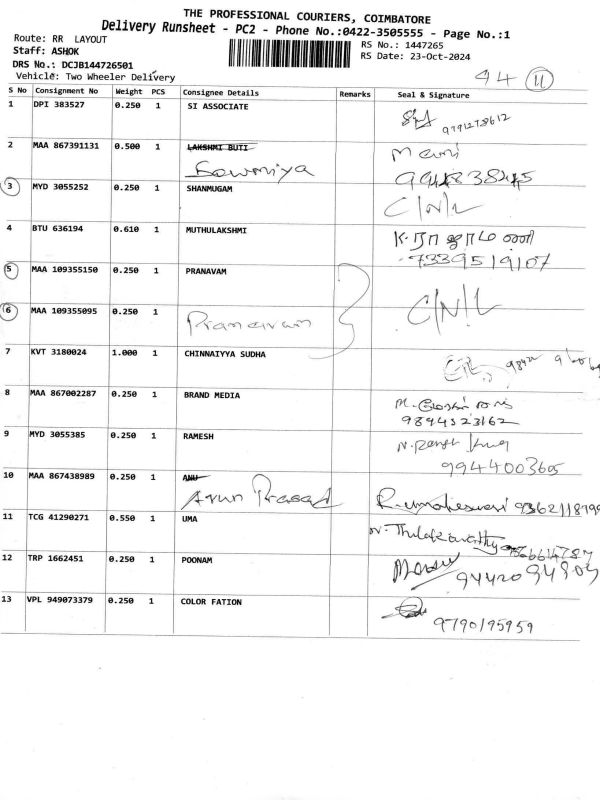 THE PROFESSIONAL COURIERS, COIMBATORE
Delivery Runsheet - PC2 - Phone No.:0422-3505555 - Page No.:1
Route: RR LAYOUT
RS No.: 1447265
Staff: ASHOK
RS Date: 23-Oct-2024
DRS No.: DCJB144726501
Vehicle: Two Wheeler Delivery
94 11
S No Consignment No Weight PCS Consignee Details Remarks Seal & Signature
1 DPI 383527 0.250 1 SI ASSOCIATE
9791278612
2 MAA 867391131 0.500 1 LAKSHMI BUTI
Sowmiya
9944838445
3 MYD 3055252 0.250 1 SHANMUGAM C/N/L
4 BTU 636194 0.610 1 MUTHULAKSHMI
7339519107
5 MAA 109355150 0.250 1 PRANAVAM
6 MAA 109355095 0.250 1 Pranavam C/N/L
7 KVT 3180024 1.000 1 CHINNAIYYA SUDHA
8 MAA 867002287 0.250 1 BRAND MEDIA
9894523162
9 MYD 3055385 0.250 1 RAMESH
9944003605
10 MAA 867438989 0.250 1 ANU
Arun Prasad R.umaheswari
11 TCG 41290271 0.550 1 UMA
12 TRP 1662451 0.250 1 POONAM
13 VPL 949073379 0.250 1 COLOR FATION
9790195959